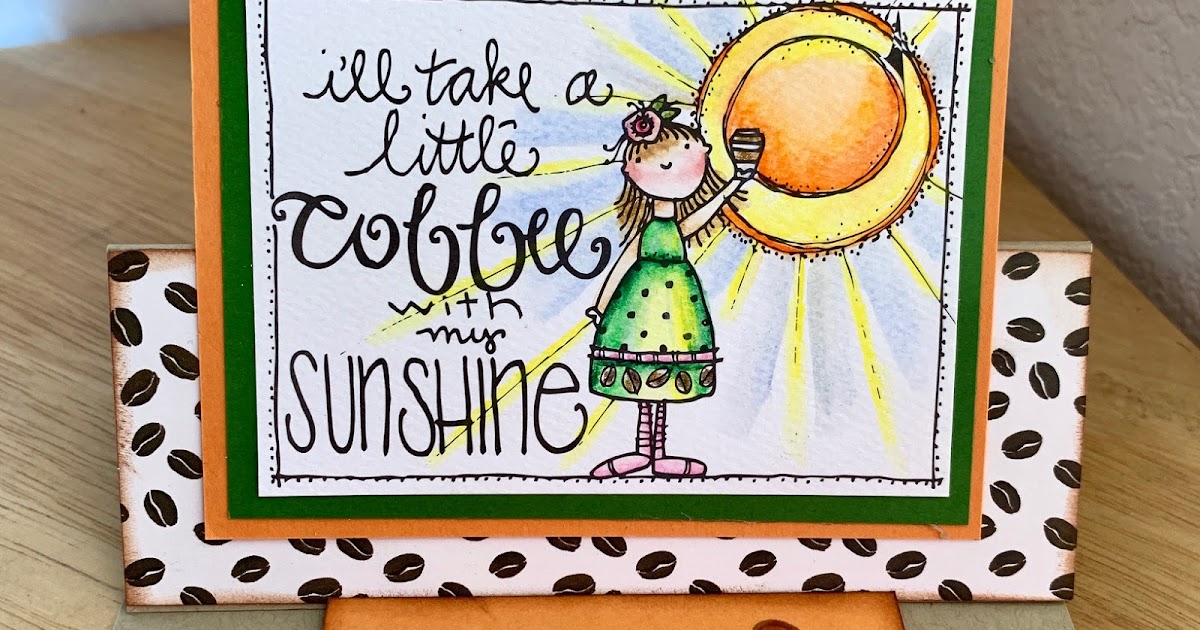 i'll take a
little
coffee
with
my
SUNSHINE